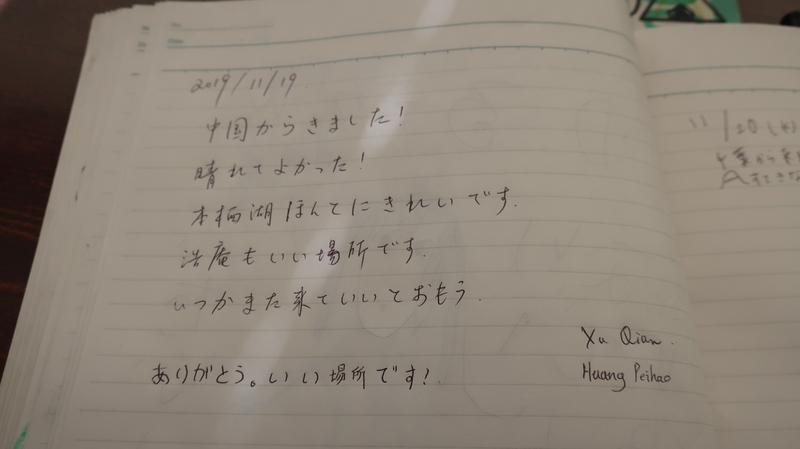 2019/11/19
中国からきました!
晴れてよかった!
本栖湖ほんてにきれいです.
浩庵もいい場所です.
いつかまた来ていいとおもう.
ありがとう。いい場所です!
Xu Qian.
Huang Peihao
11/20(水)
千葉から来